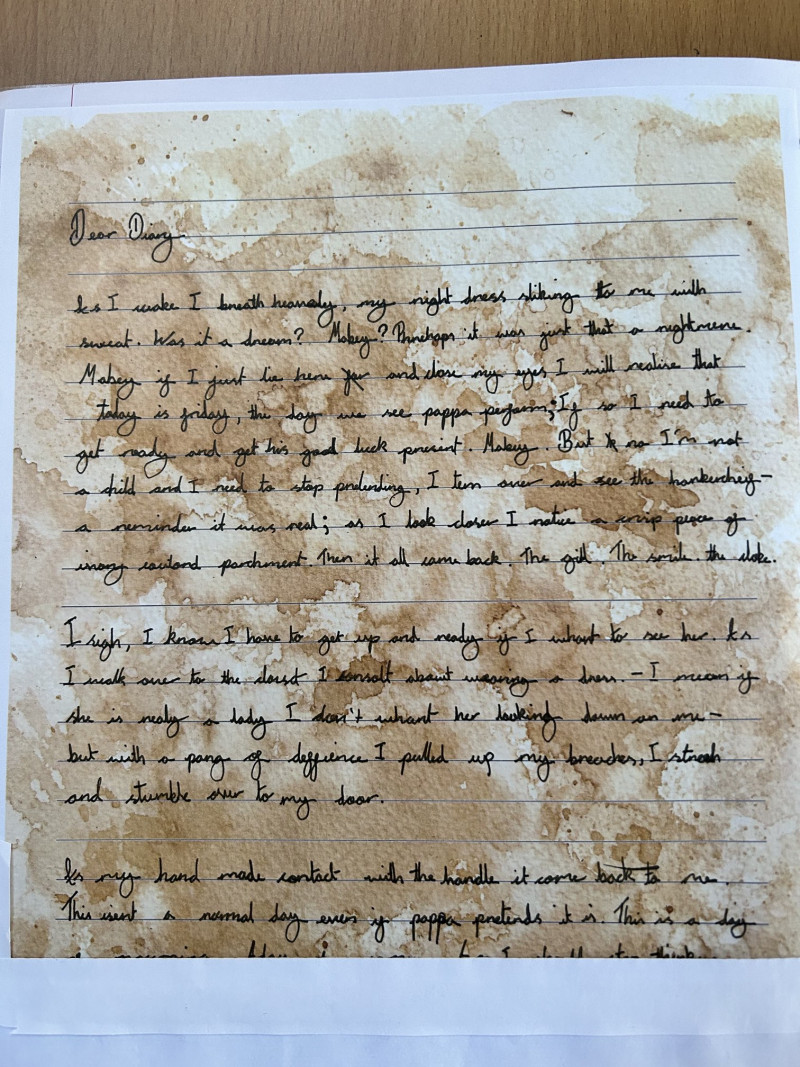 Dear Diary
As I wake I breath heaverly, my night dress sliking to me with
sweat. Was it a dream? Mabey? Pinehaps it was just that a nightmere.
Mabey if I just lie here and close my eyes I will realise that
today is friday, the day we see pappa perform; If so I need to
get ready and get his good luck present. Mabey. But no I'm not
a child and I need to stop pretending, I tern over and see the hankercheif-
a reminder it was real; as I look closer I notice a crisp peace of
ivory parchment. Then it all came back. The gift. The smile. the cloke.
I sigh, I know I have to get up and ready if I whant to see her. As
I walk over to the closet I consolt about wearing a dress. - I mean if
she is realy a lady I don't whant her looking down on me-
but with a pang of deffience I pulled up my breaches, I streach
and stumble over to my door.
As my hand made contact with the handle it came back to me.
This isent a normal day even if pappa pretends it is. This is a day